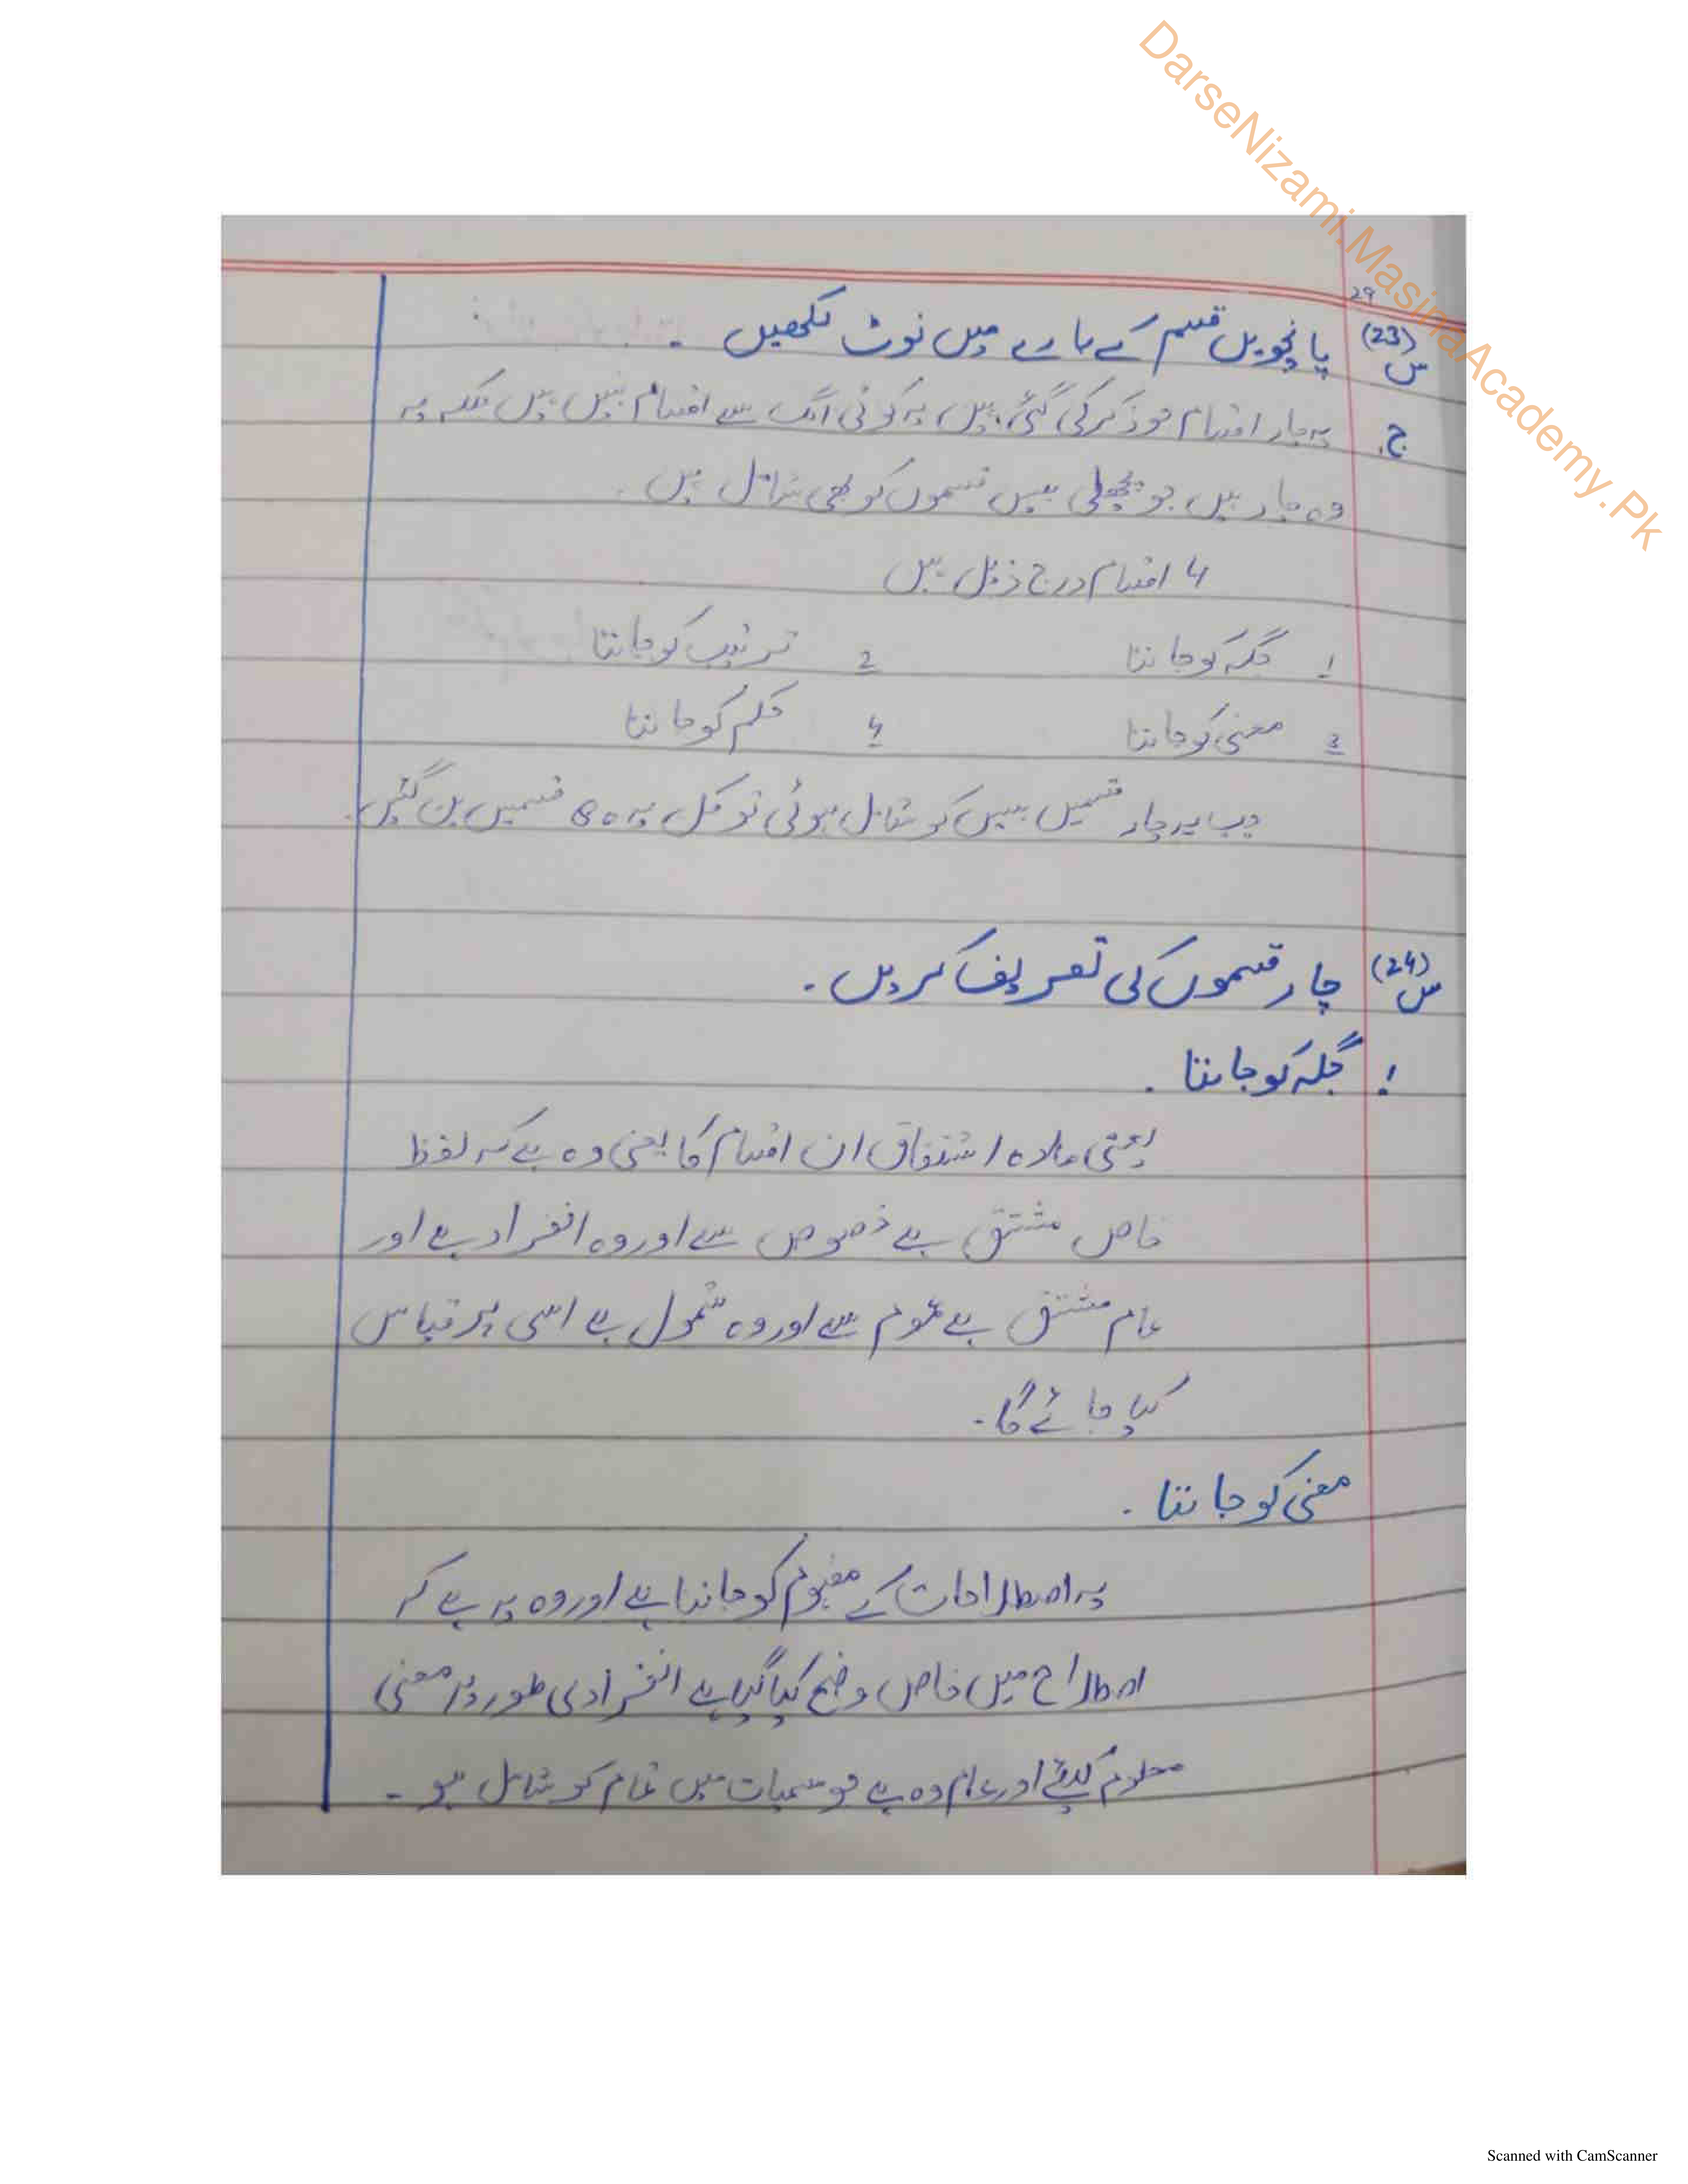 DarseNizami.MasimaAcademy.Pk
29
س(23) پانچویں قسم کے بارے میں نوٹ لکھیں ۔
ج۔ یہ چار اقسام جو ذکر کی گئی ہیں، یہ کوئی الگ سے اقسام نہیں ہیں بلکہ یہ
وہ چار ہیں جو پچھلی بیس قسموں کو بھی شامل ہیں ۔
4 اقسام درج ذیل ہیں
1 جگہ کو جاننا 2 ترتیب کو جاننا
3 معنی کو جاننا 4 حکم کو جاننا
جب یہ چار قسمیں بیس کو شامل ہوئی تو کل یہ 80 قسمیں بن گئیں۔
س(24) چار قسموں کی تعریف کریں ۔
1. جگہ کو جاننا ۔
یعنی مادہ اشتقاق ان اقسام کا یعنی وہ ہے کہ لفظ
خاص مشتق ہے خصوص سے اور وہ انفراد ہے اور
عام مشتق ہے عموم سے اور وہ شمول ہے اسی پر قیاس
کیا جائے گا۔
معنی کو جاننا ۔
یہ اصطلاحات کے مفہوم کو جاننا ہے اور وہ یہ ہے کہ
اصطلاح میں خاص وضع کیا گیا ہے انفرادی طور پر معنی
معلوم کیلئے اور عام وہ ہے جو مسمیات میں تمام کو شامل ہو ۔
Scanned with CamScanner